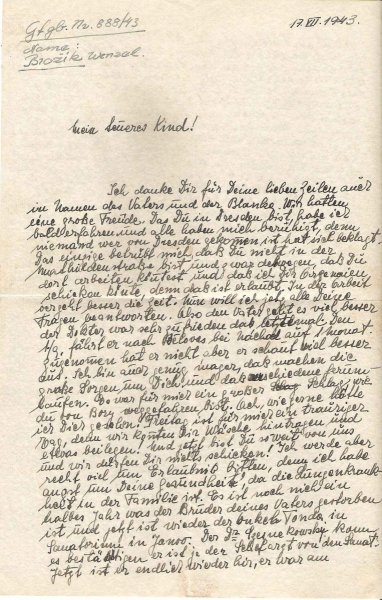 Gfgb. Nr. 888/43
Name:
Brožik Wenzel.
17.VII.1943.
Mein teueres Kind!
Ich danke Dir für Deine lieben Zeilen auch
im Namen des Vaters und der Blanka. Wir hatten
eine große Freude. Das Du in Dresden bist, habe ich
bald erfahren und alle haben mich beruhigt, denn
niemand wer von Dresden gekommen ist hat sich beklagt.
Das einzige betrübt mich, daß Du nicht in der
Mathildenstraße bist und zwar deswegen, daß Du
dort arbeiten könntest und daß ich Dir
schicken könnte, denn das ist erlaubt. In der Arbeit
vergeht besser die Zeit. Nun will ich alle Deine
Fragen beantworten. Also den Vater geht es viel besser
der Doktor war sehr zufrieden das letztemal. Den
fährt er nach Běloves bei Náchod auf 1 Monat.
Zugenomen hat er nicht aber er schaut viel besser
aus. Ich bin auch genug mager, das machen die
große Sorgen um Dich und das
laufen. Es war für mich ein großer Schlag, wie
du von Bory weggefahren bist. Ach, wie gerne hätte
ich Dich gesehen! Freitag ist für mich ein trauriger
Tag, denn wir konnten Dir Wäsche hintragen und
etwas beilegen. Und jetzt bist Du so weit von uns
und wir dürfen Dir nichts schicken! Ich werde aber
recht viel um Erlaubnis bitten, denn ich habe
Angst um Deine Gesundheit, da die Lungenkrank-
heit in der Familie ist. Es ist noch nicht ein
halbes Jahr was der Bruder deines Vaters gestorben
ist, und jetzt ist wieder der Onkel Tonda in
Sanatorium in Janov. Der Dr. kann
es bestätigen er ist ja der Chefarzt von den Sanat.
Jetzt ist er endlich wieder hir, er war am